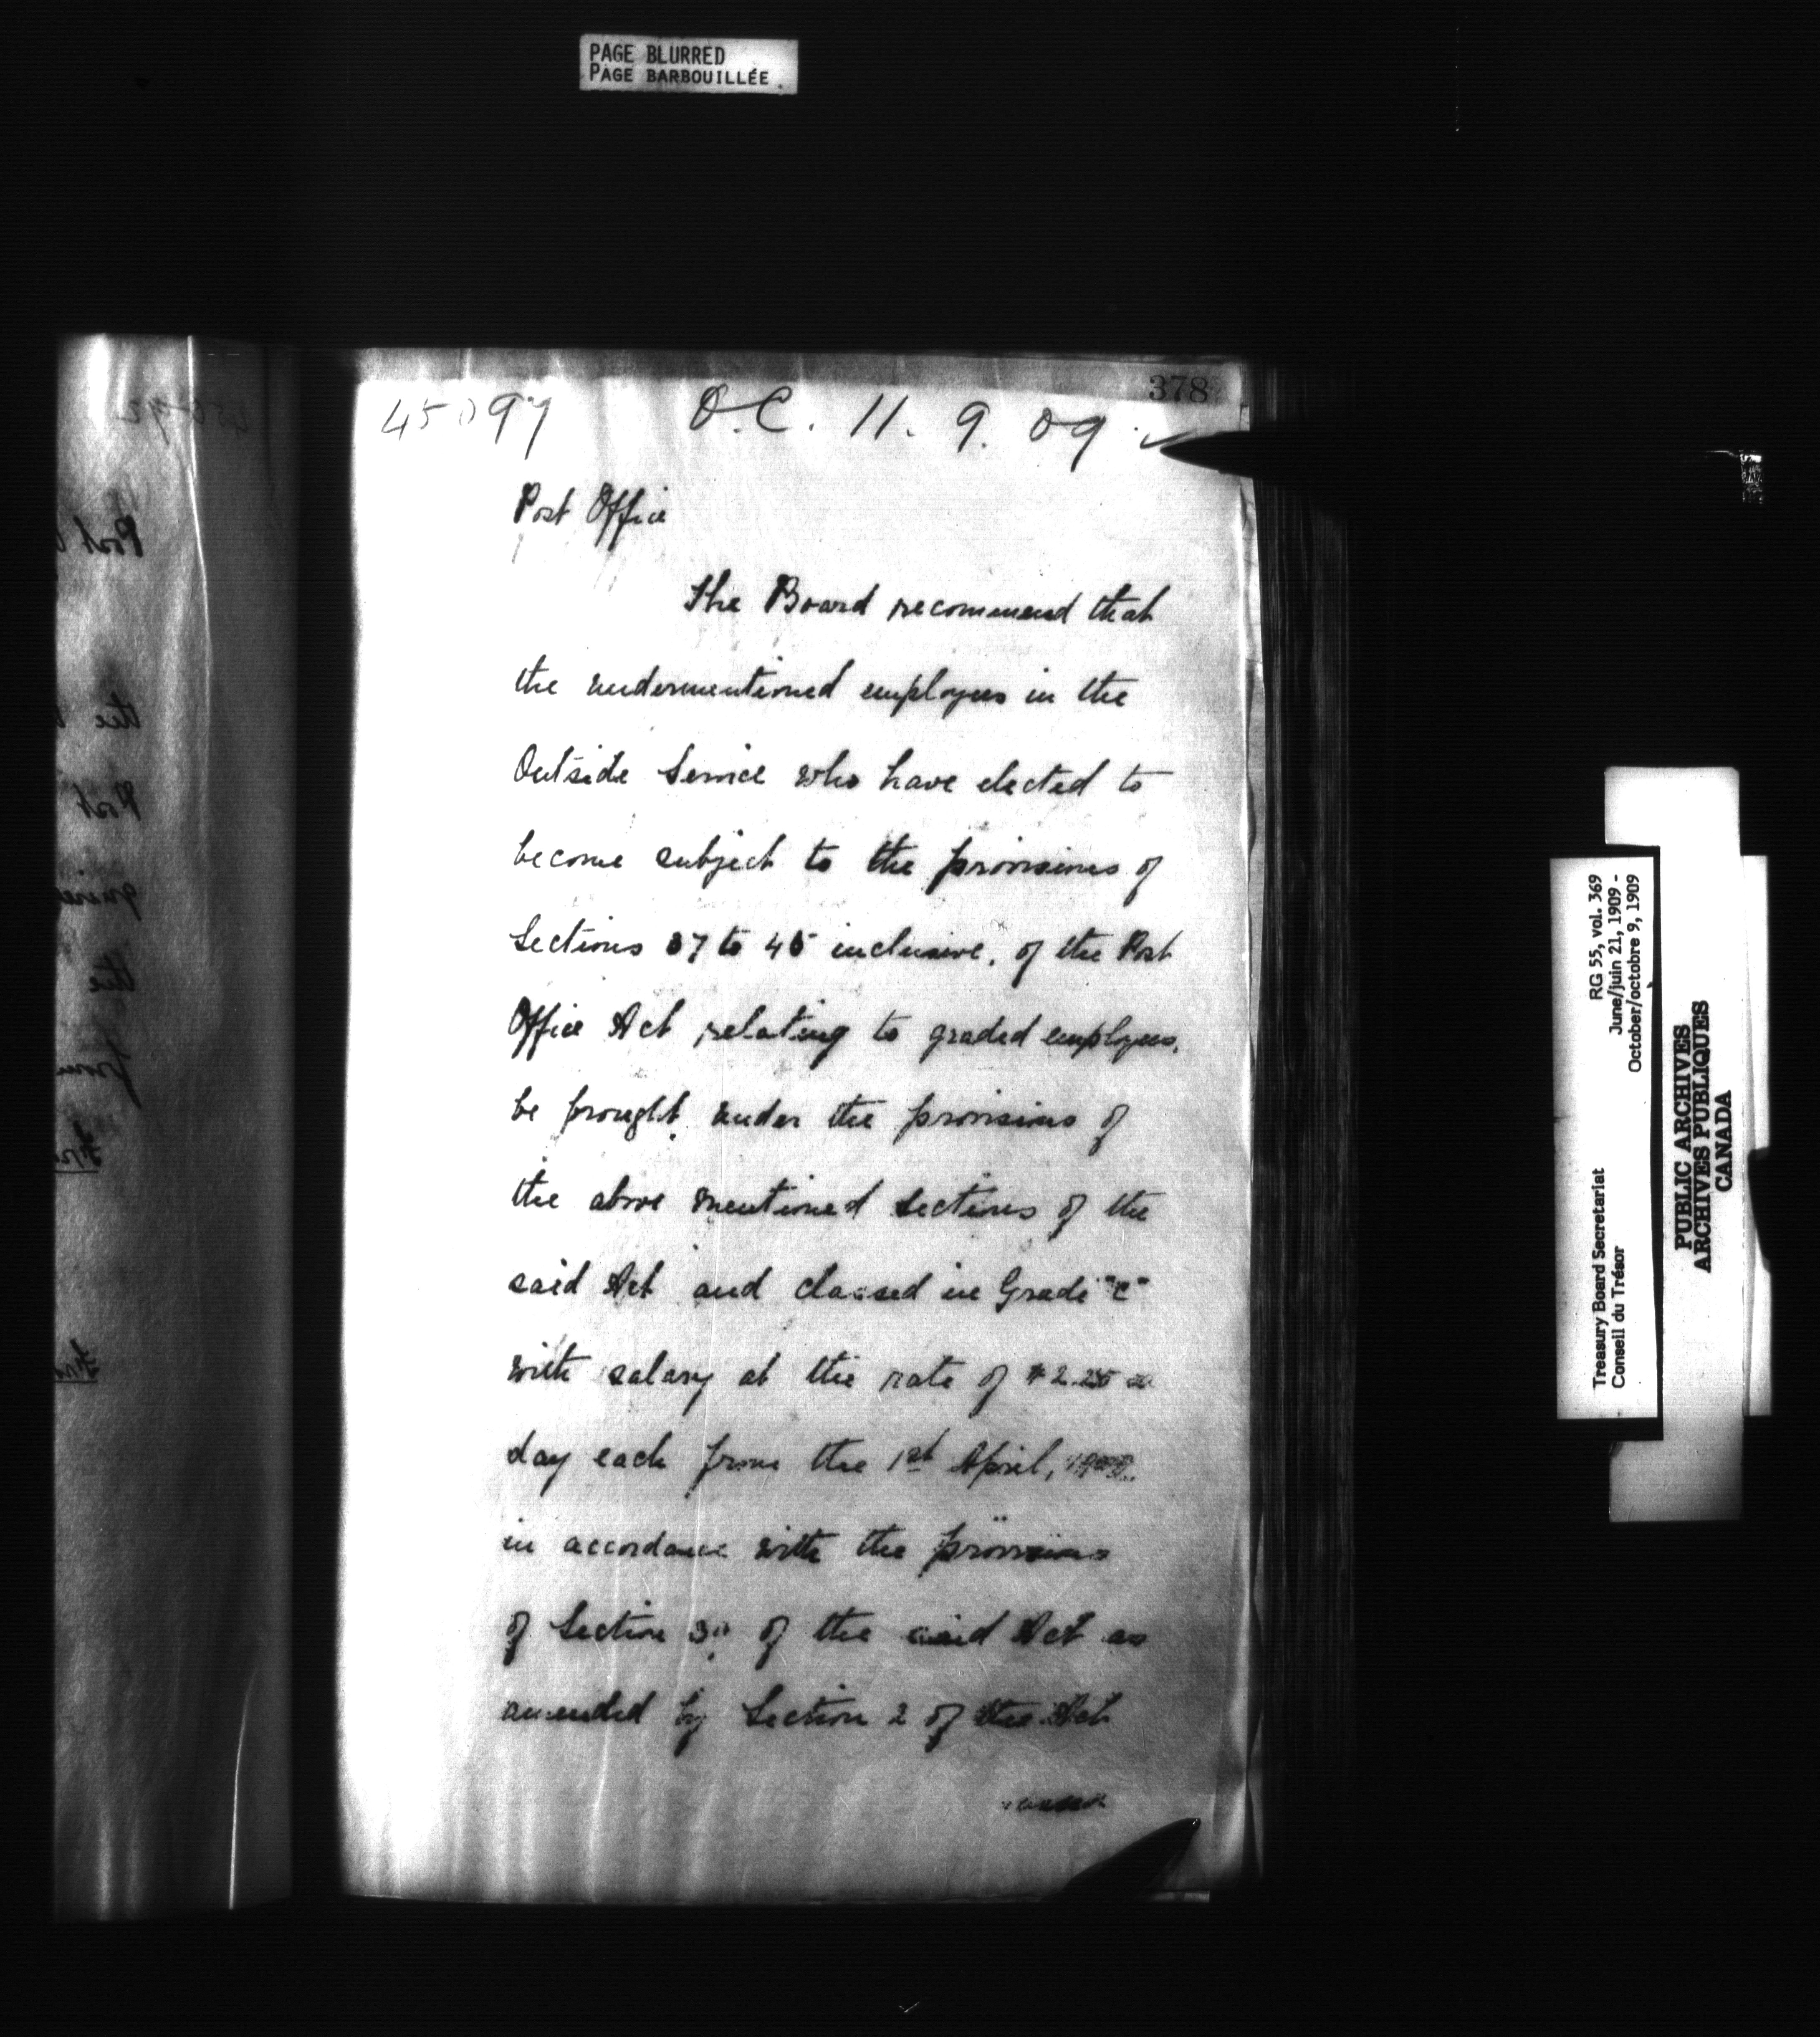 PAGE BLURRED
PAGE BARBOUILLÉE
378
45097 O.C. 11. 9. 09
Post Office
The Board recommend that
the undermentioned employees in the
Outside Service who have elected to
become subject to the provisions of
Sections 37 to 45 inclusive, of the Post
Office Act relating to graded employees,
be brought under the provisions of
the above mentioned sections of the
said Act and classed in Grade "C"
with salary at the rate of $2.25 a
day each from the 1st April,
in accordance with the provisions
of Section of the said Act as
amended by Section 2 of the Act
Treasury Board Secretariat RG 55, vol. 369
Conseil du Trésor June/juin 21, 1909 -
October/octobre 9, 1909
PUBLIC ARCHIVES
ARCHIVES PUBLIQUES
CANADA